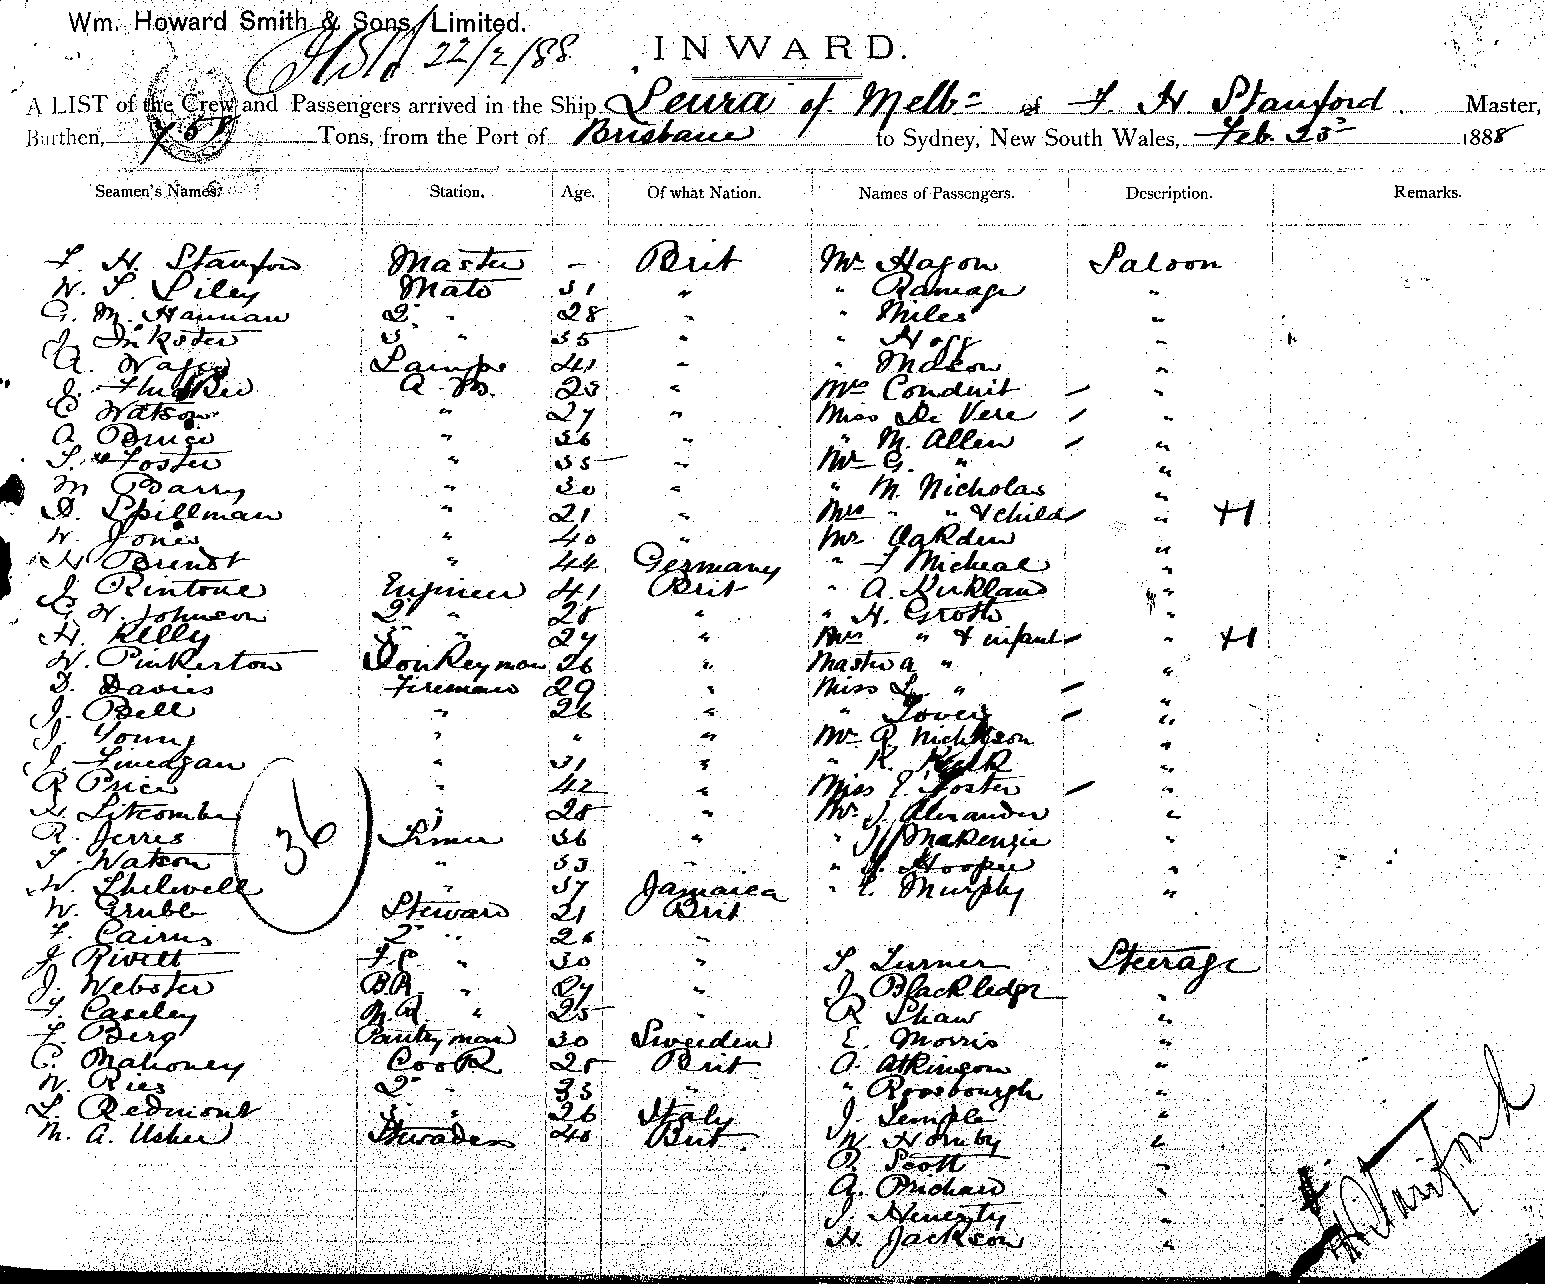 Wm. Howard Smith & Sons, Limited.
22/2/88
INWARD.
A LIST of the Crew and Passengers arrived in the Ship Leura of Melb. of F. H. Stanford Master,
Burthen, 758 Tons, from the Port of Brisbane to Sydney, New South Wales, Feb. 23 1888
Seamen's Names. Station. Age. Of what Nation. Names of Passengers. Description. Remarks.
F. H. Stanford Master - Brit Mr Hagon Saloon
W. S. Liley Mate 31 " " Ramage "
G. M. Hannan 2 " 28 " " Miles "
J. Inkster 3 " 35 " " Hogg "
A. Lamps 41 " " Mason "
J. A. B. 23 " Mrs Conduit "
C Watson " 27 " Miss De Vere "
A Bruce " 36 " " M. Allen "
S. Foster " 35 " Mr G. " "
M Barry " 30 " " M. Nicholas "
D. Spillman " 21 " Mrs " " & child "
W. Jones " 40 " Mr Oakden "
H Brindt " 44 Germany " F Micheal "
J. Rintone Engineer 41 Brit " A. Kirkland "
G. W. Johnson 2 " 28 " " H. Groth "
H. Kelly 3 " 27 " Mrs " & infant "
W. Pinkerton Donkeyman 26 " Master a " "
D. Davies Fireman 29 " Miss L. " "
J. Bell " 26 " " "
J. Young " " " Mr R Nicholson "
J. Finegan " 31 " " K. "
R Price " 42 " Miss E. Foster "
H Litcombe " 28 " Mr J. Alexander "
R. Jerres 36 " " Makenzie "
S. Watson " 33 " " Hooper "
W. Thelwell " 37 Jamaica " E. Murphy "
W. Grubb Steward 21 Brit
F. Cairns 2 " 26 "
J Rivett F.C. " 30 " S. Turner Steerage
J. Webster B.R. " 27 " J Blackledge "
F. Caseley " 25 " R Shaw "
F. Berg Pantryman 30 Sweden E. Morris "
C. Mahoney Cook 28 Brit A. Atkinson "
W. Ries 2 " 33 " " Roxbourgh "
L. Redmont 3 " 26 Italy J. Temple "
M. A. Usher Stewardess 40 Brit W Hornby "
Scott "
A. Prichard "
J. "
H. Jackson "
36
F H Stanford